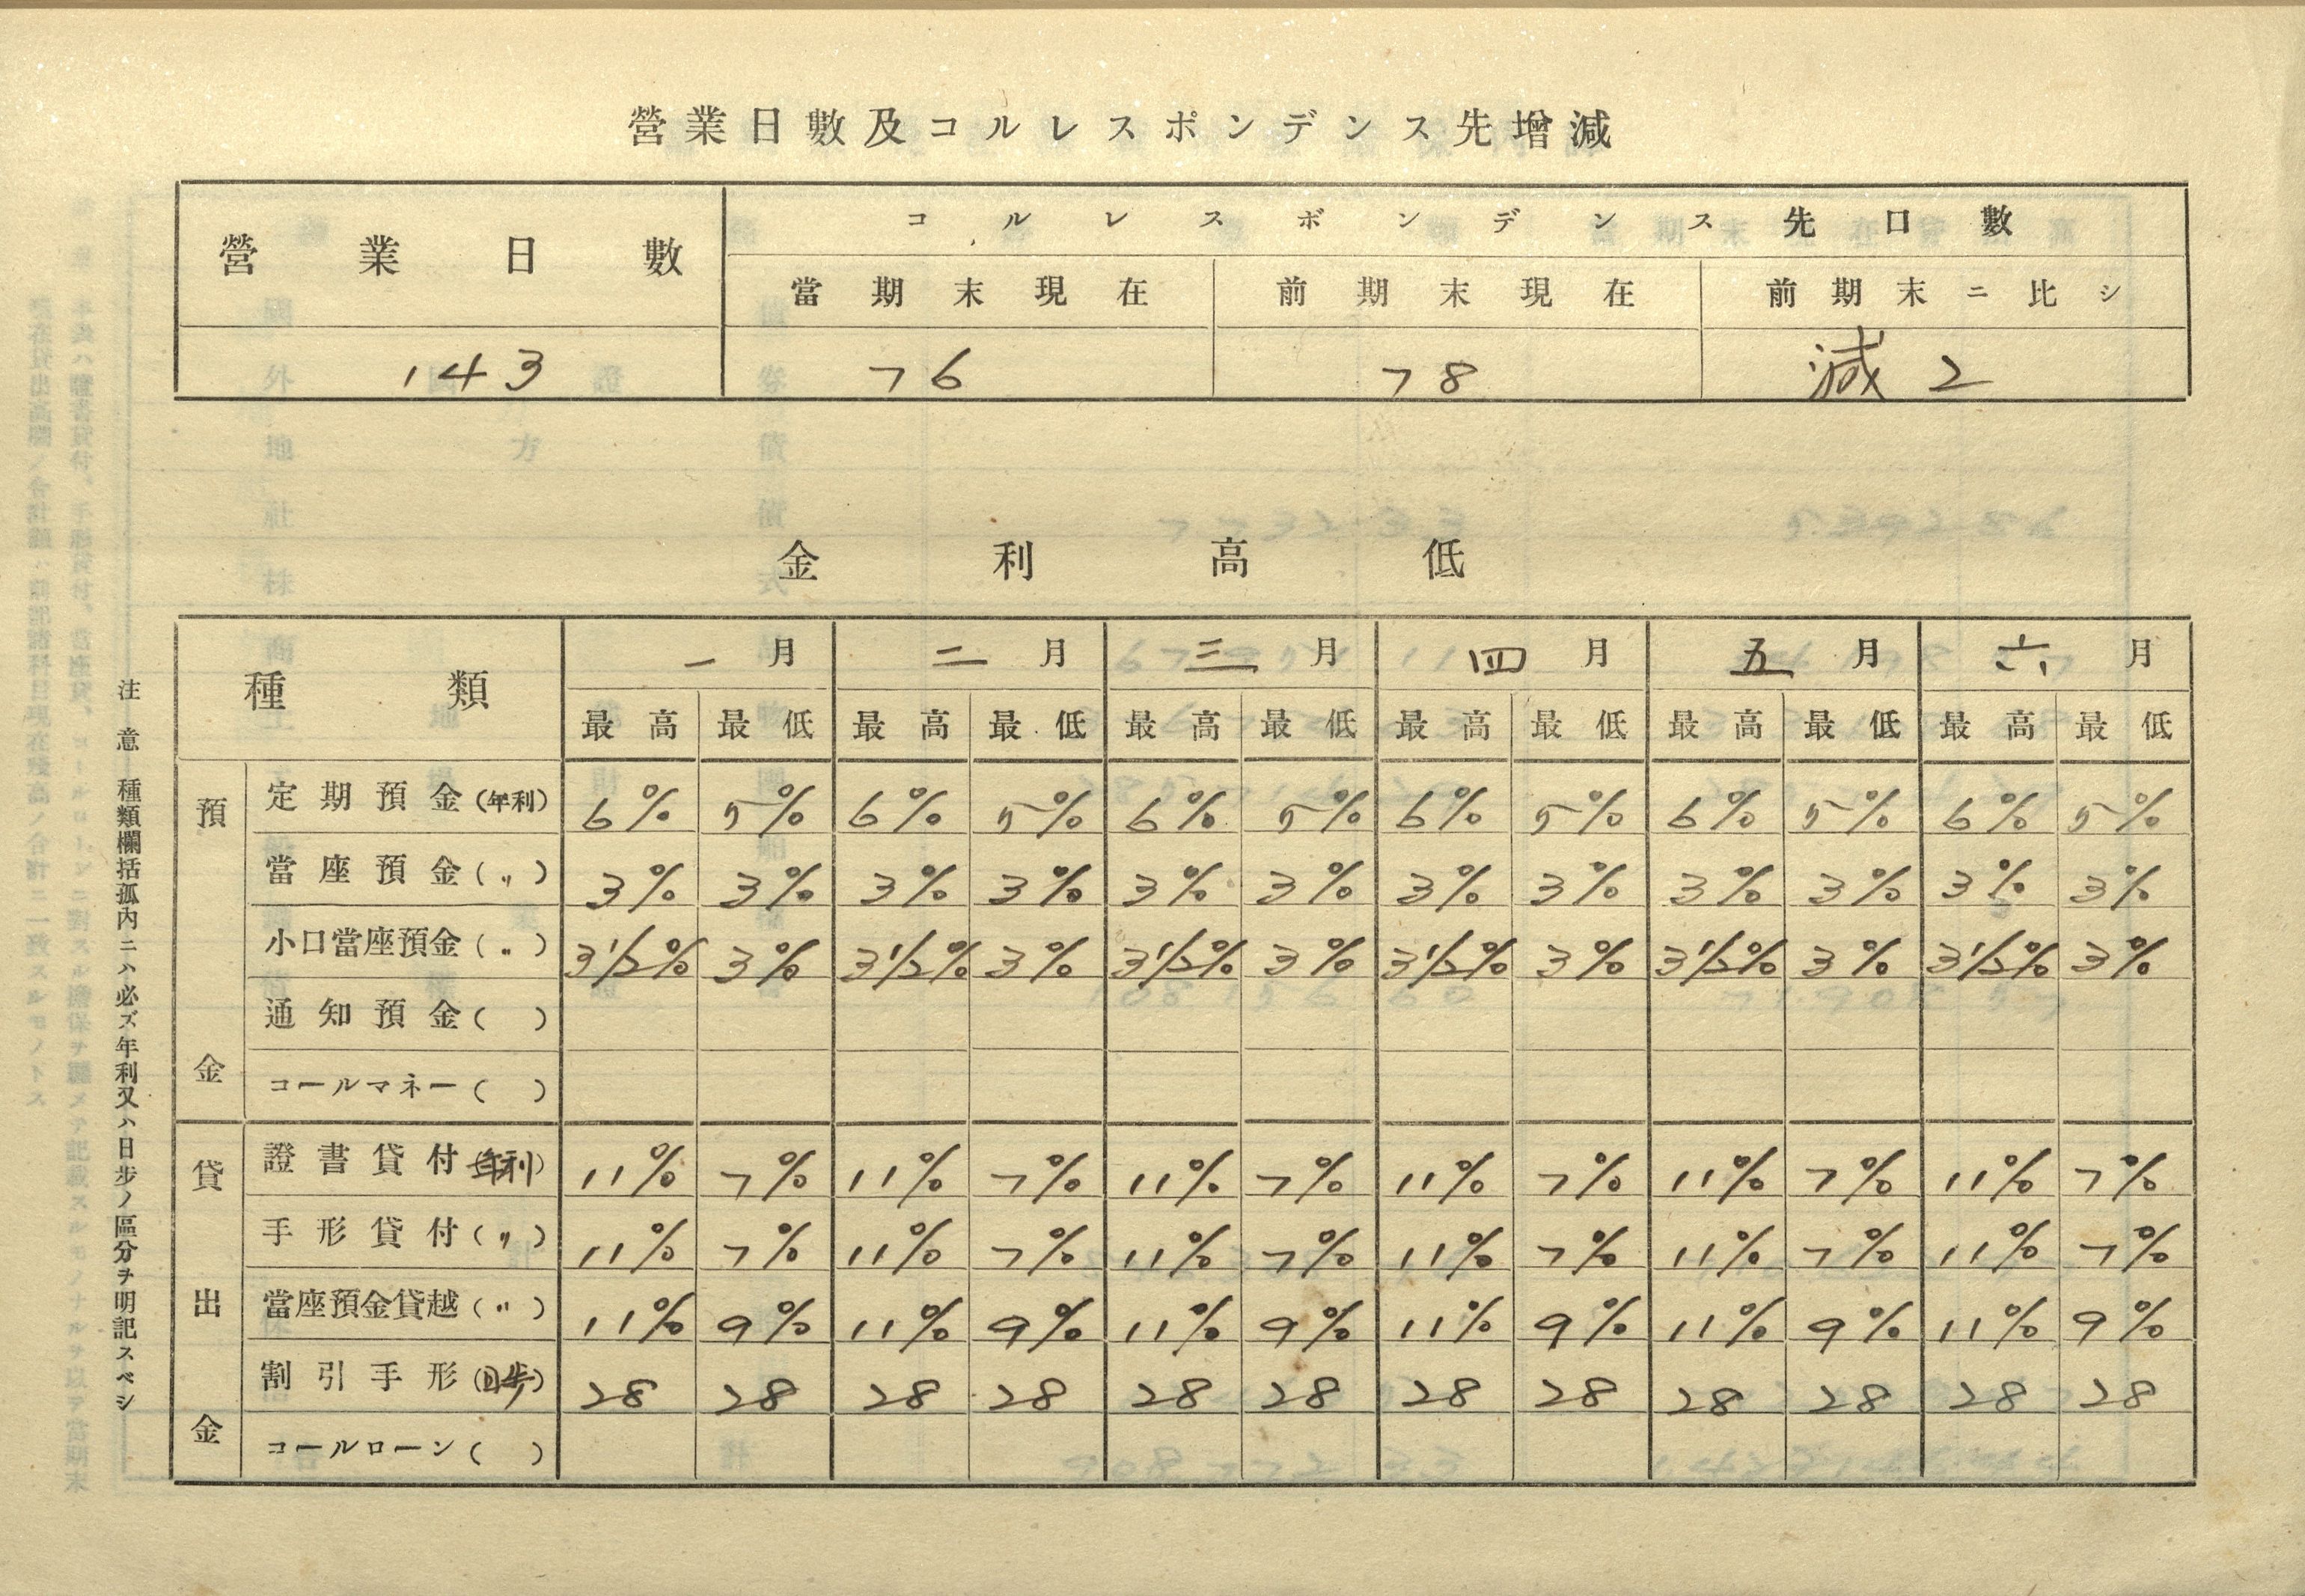 營業日數及コルレスポンデンス先增減
營業日數 コルレスボンデンス先口數
當期末現在 前期末現在 前期末ニ比シ
143 76 78 減2
金利高低
種類 一月 二月 三月 四月 五月 六月
最高 最低 最高 最低 最高 最低 最高 最低 最高 最低 最高 最低
預金
定期預金(年利) 6% 5% 6% 5% 6% 5% 6% 5% 6% 5% 6% 5%
當座預金(〃) 3% 3% 3% 3% 3% 3% 3% 3% 3% 3% 3% 3%
小口當座預金(〃) 3 1/2% 3% 3 1/2% 3% 3 1/2% 3% 3 1/2% 3% 3 1/2% 3% 3 1/2% 3%
通知預金( )
コールマネー( )
貸出金
證書貸付(年利) 11% 7% 11% 7% 11% 7% 11% 7% 11% 7% 11% 7%
手形貸付(〃) 11% 7% 11% 7% 11% 7% 11% 7% 11% 7% 11% 7%
當座預金貸越(〃) 11% 9% 11% 9% 11% 9% 11% 9% 11% 9% 11% 9%
割引手形(日步) 28 28 28 28 28 28 28 28 28 28 28 28
コールローン( )
注意 種類欄括孤內ニハ必ズ年利又ハ日步ノ區分ヲ明記スベシ